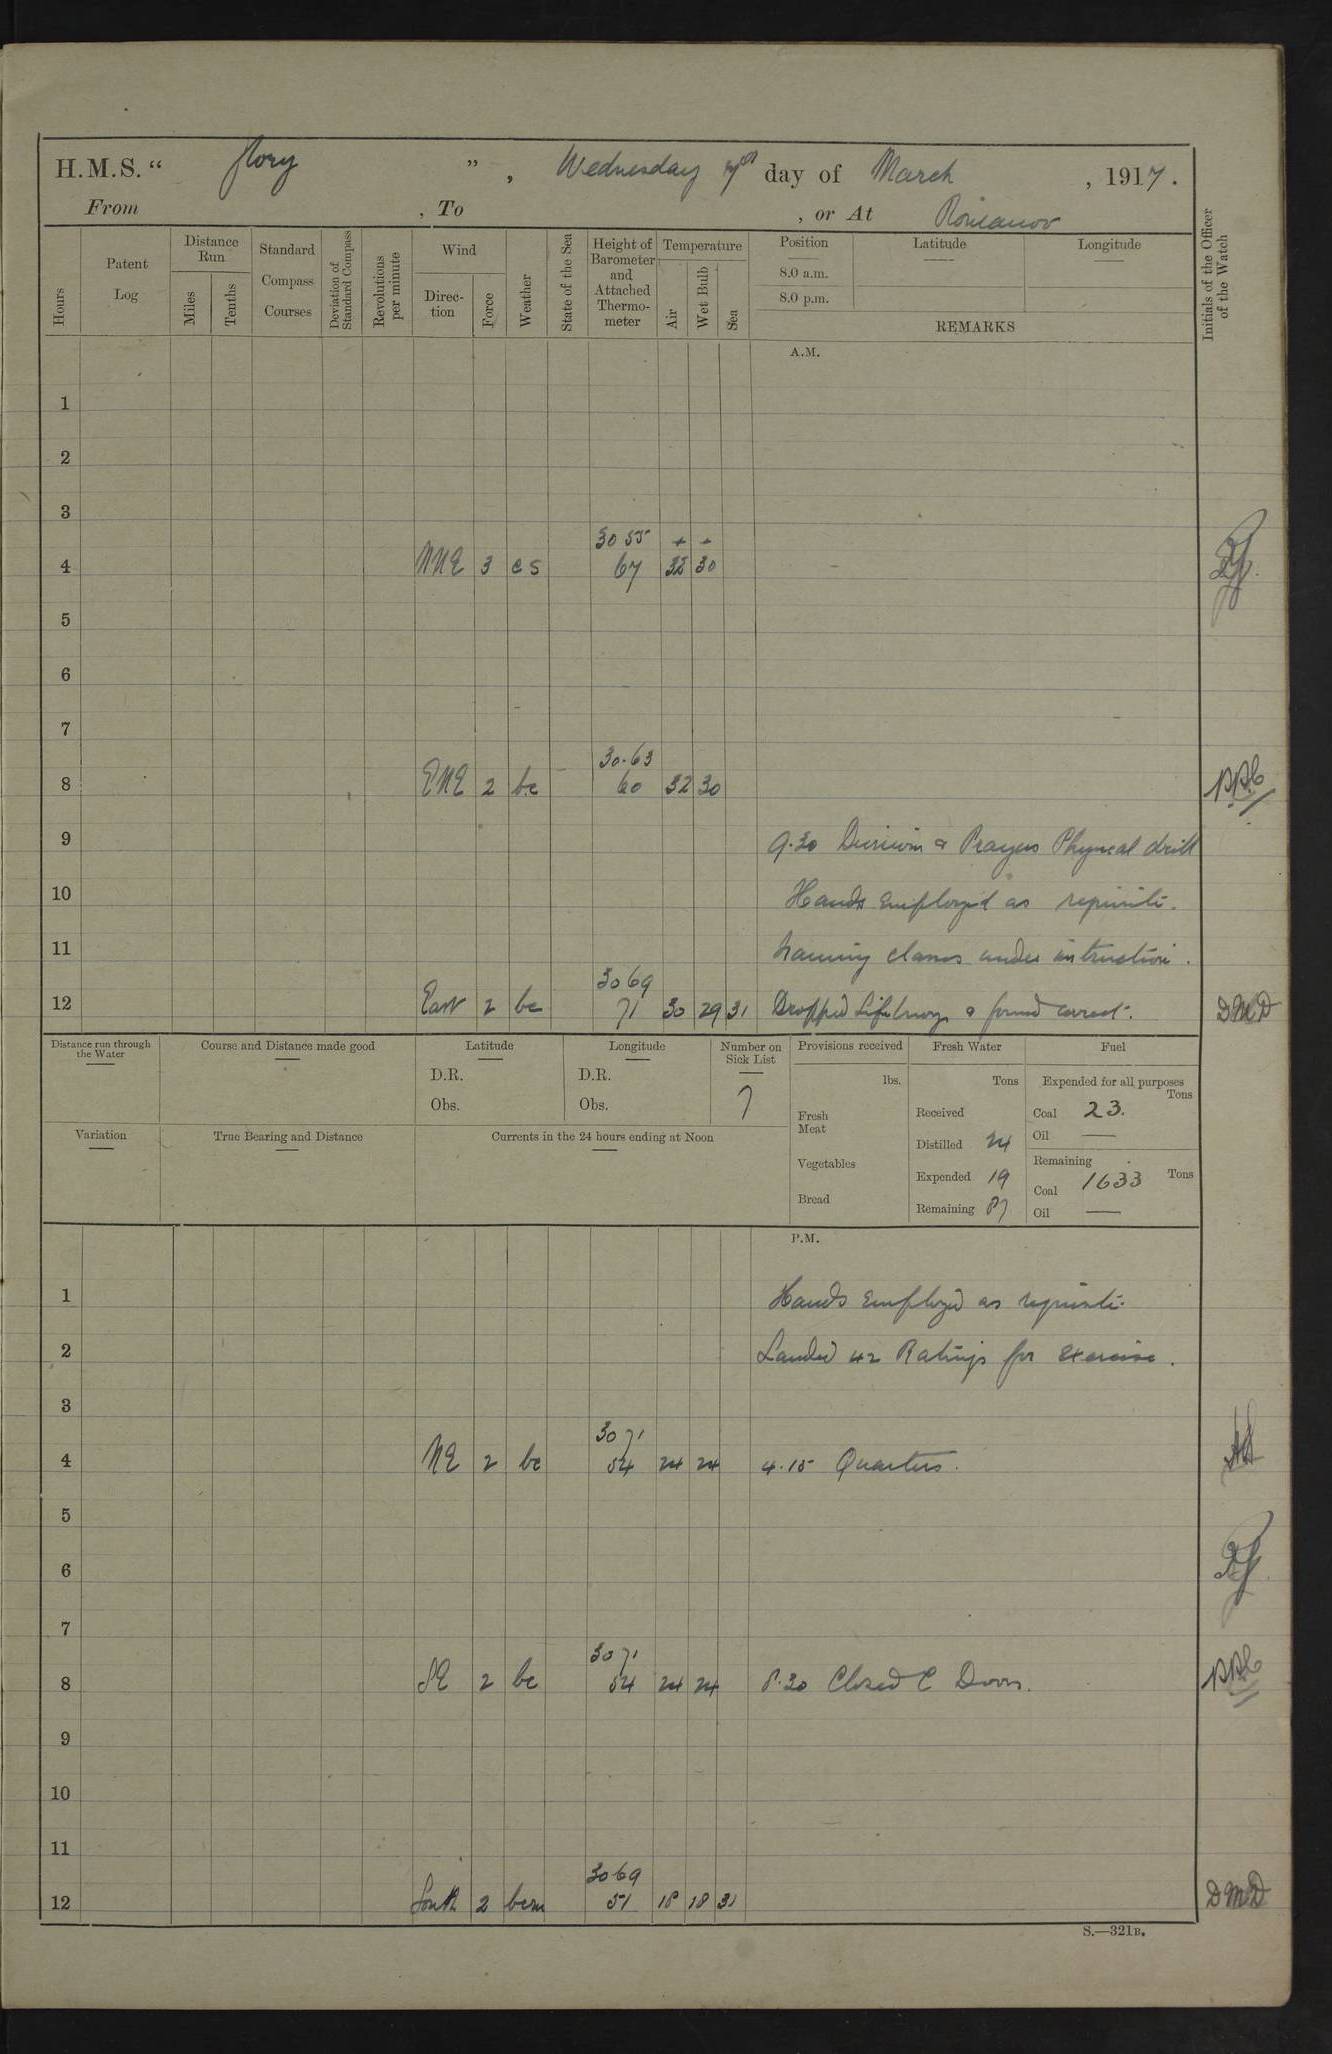 H.M.S. “ Glory ” , Wednesday 7th day of March , 1917.
From , To , or At Romanov
Hours
Patent Log
Distance Run
Miles
Tenths
Standard Compass Courses
Deviation of Standard Compass
Revolutions per minute
Wind
Direc-tion
Force
Weather
State of the Sea
Height of Barometer and Attached Thermo-meter
Temperature
Air
Wet Bulb
Sea
Position
8.0 a.m.
8.0 p.m.
Latitude
Longitude
REMARKS
Initials of the Officer of the Watch
A.M.
1
2
3
30 55 + -
4 NNE 3 cs 67 32 30
5
6
7
30.63
8 ENE 2 bc 60 32 30
9 9.30 Division & Prayers Physical drill
10 Hands employed as requisite.
11 Training classes under instruction.
30 69
12 East 2 bc 71 30 29 31 Dropped Lifebuoys & found correct. DMD
Distance run through the Water
Course and Distance made good
Latitude
D.R.
Obs.
Longitude
D.R.
Obs.
Number on Sick List
7
Provisions received
lbs.
Fresh Meat
Vegetables
Bread
Fresh Water
Tons
Received
Distilled 24
Expended 19
Remaining 87
Fuel
Expended for all purposes
Tons
Coal 23.
Oil —
Remaining
Coal 1633 Tons
Oil —
Variation
True Bearing and Distance
Currents in the 24 hours ending at Noon
P.M.
1 Hands employed as requisite.
2 Landed 42 Ratings for exercise.
3
30 71
4 NE 2 bc 54 24 24 4.15 Quarters.
5
6
7
30 71
8 SE 2 bc 54 24 24 8.30 Closed C Doors.
9
10
11
30 69
12 South 2 bcm 51 18 18 31 DMD
S.—321B.